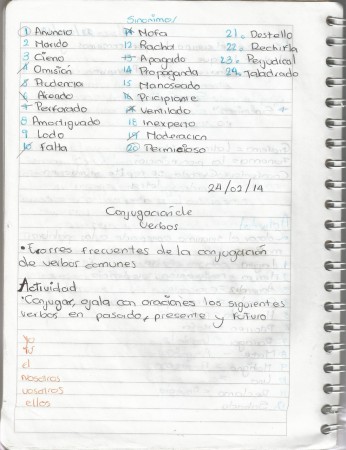 Sinónimos
1 Anuncio
2 Marido
3 Cieno
4 Omisión
5 Prudencia
6 Aireado
7 Perforado
8 Amortiguado
9 Lodo
10 Falta
11 Mofa
12 Racha
13 Apagado
14 Propaganda
15 Manoseado
16 Principiante
17 Ventilado
18 Inexperto
19 Moderacion
20 Pernicioso
21. Destello
22. Rechifla
23. Perjudical
24. Taladrado
24/02/14
Conjugación de
verbos
• Errores frecuentes de la conjugación
de verbos comunes
Actividad
• Conjugar, ojala con oraciones los siguientes
verbos en pasado, presente y futuro
Yo
tu
el
nosotros
vosotros
ellos